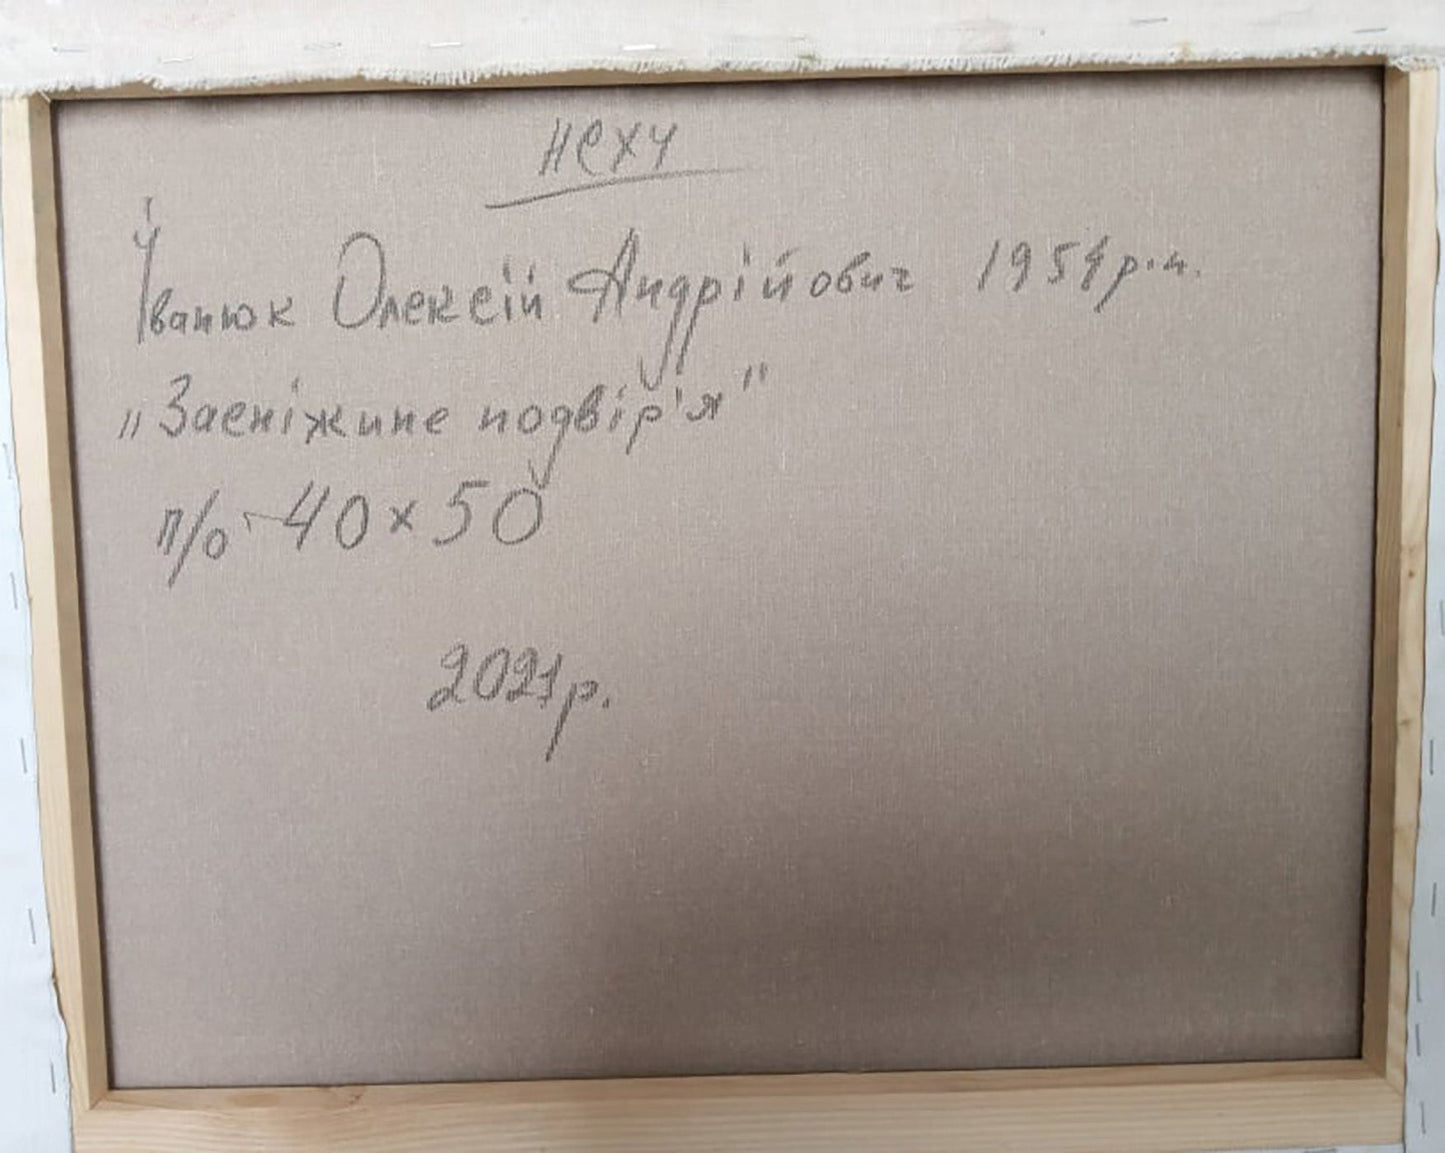 НСХУ
Іванюк Олексій Андрійович 1954 р.н.
„Засніжине подвір'я"
п/о 40 х 50
2021р.